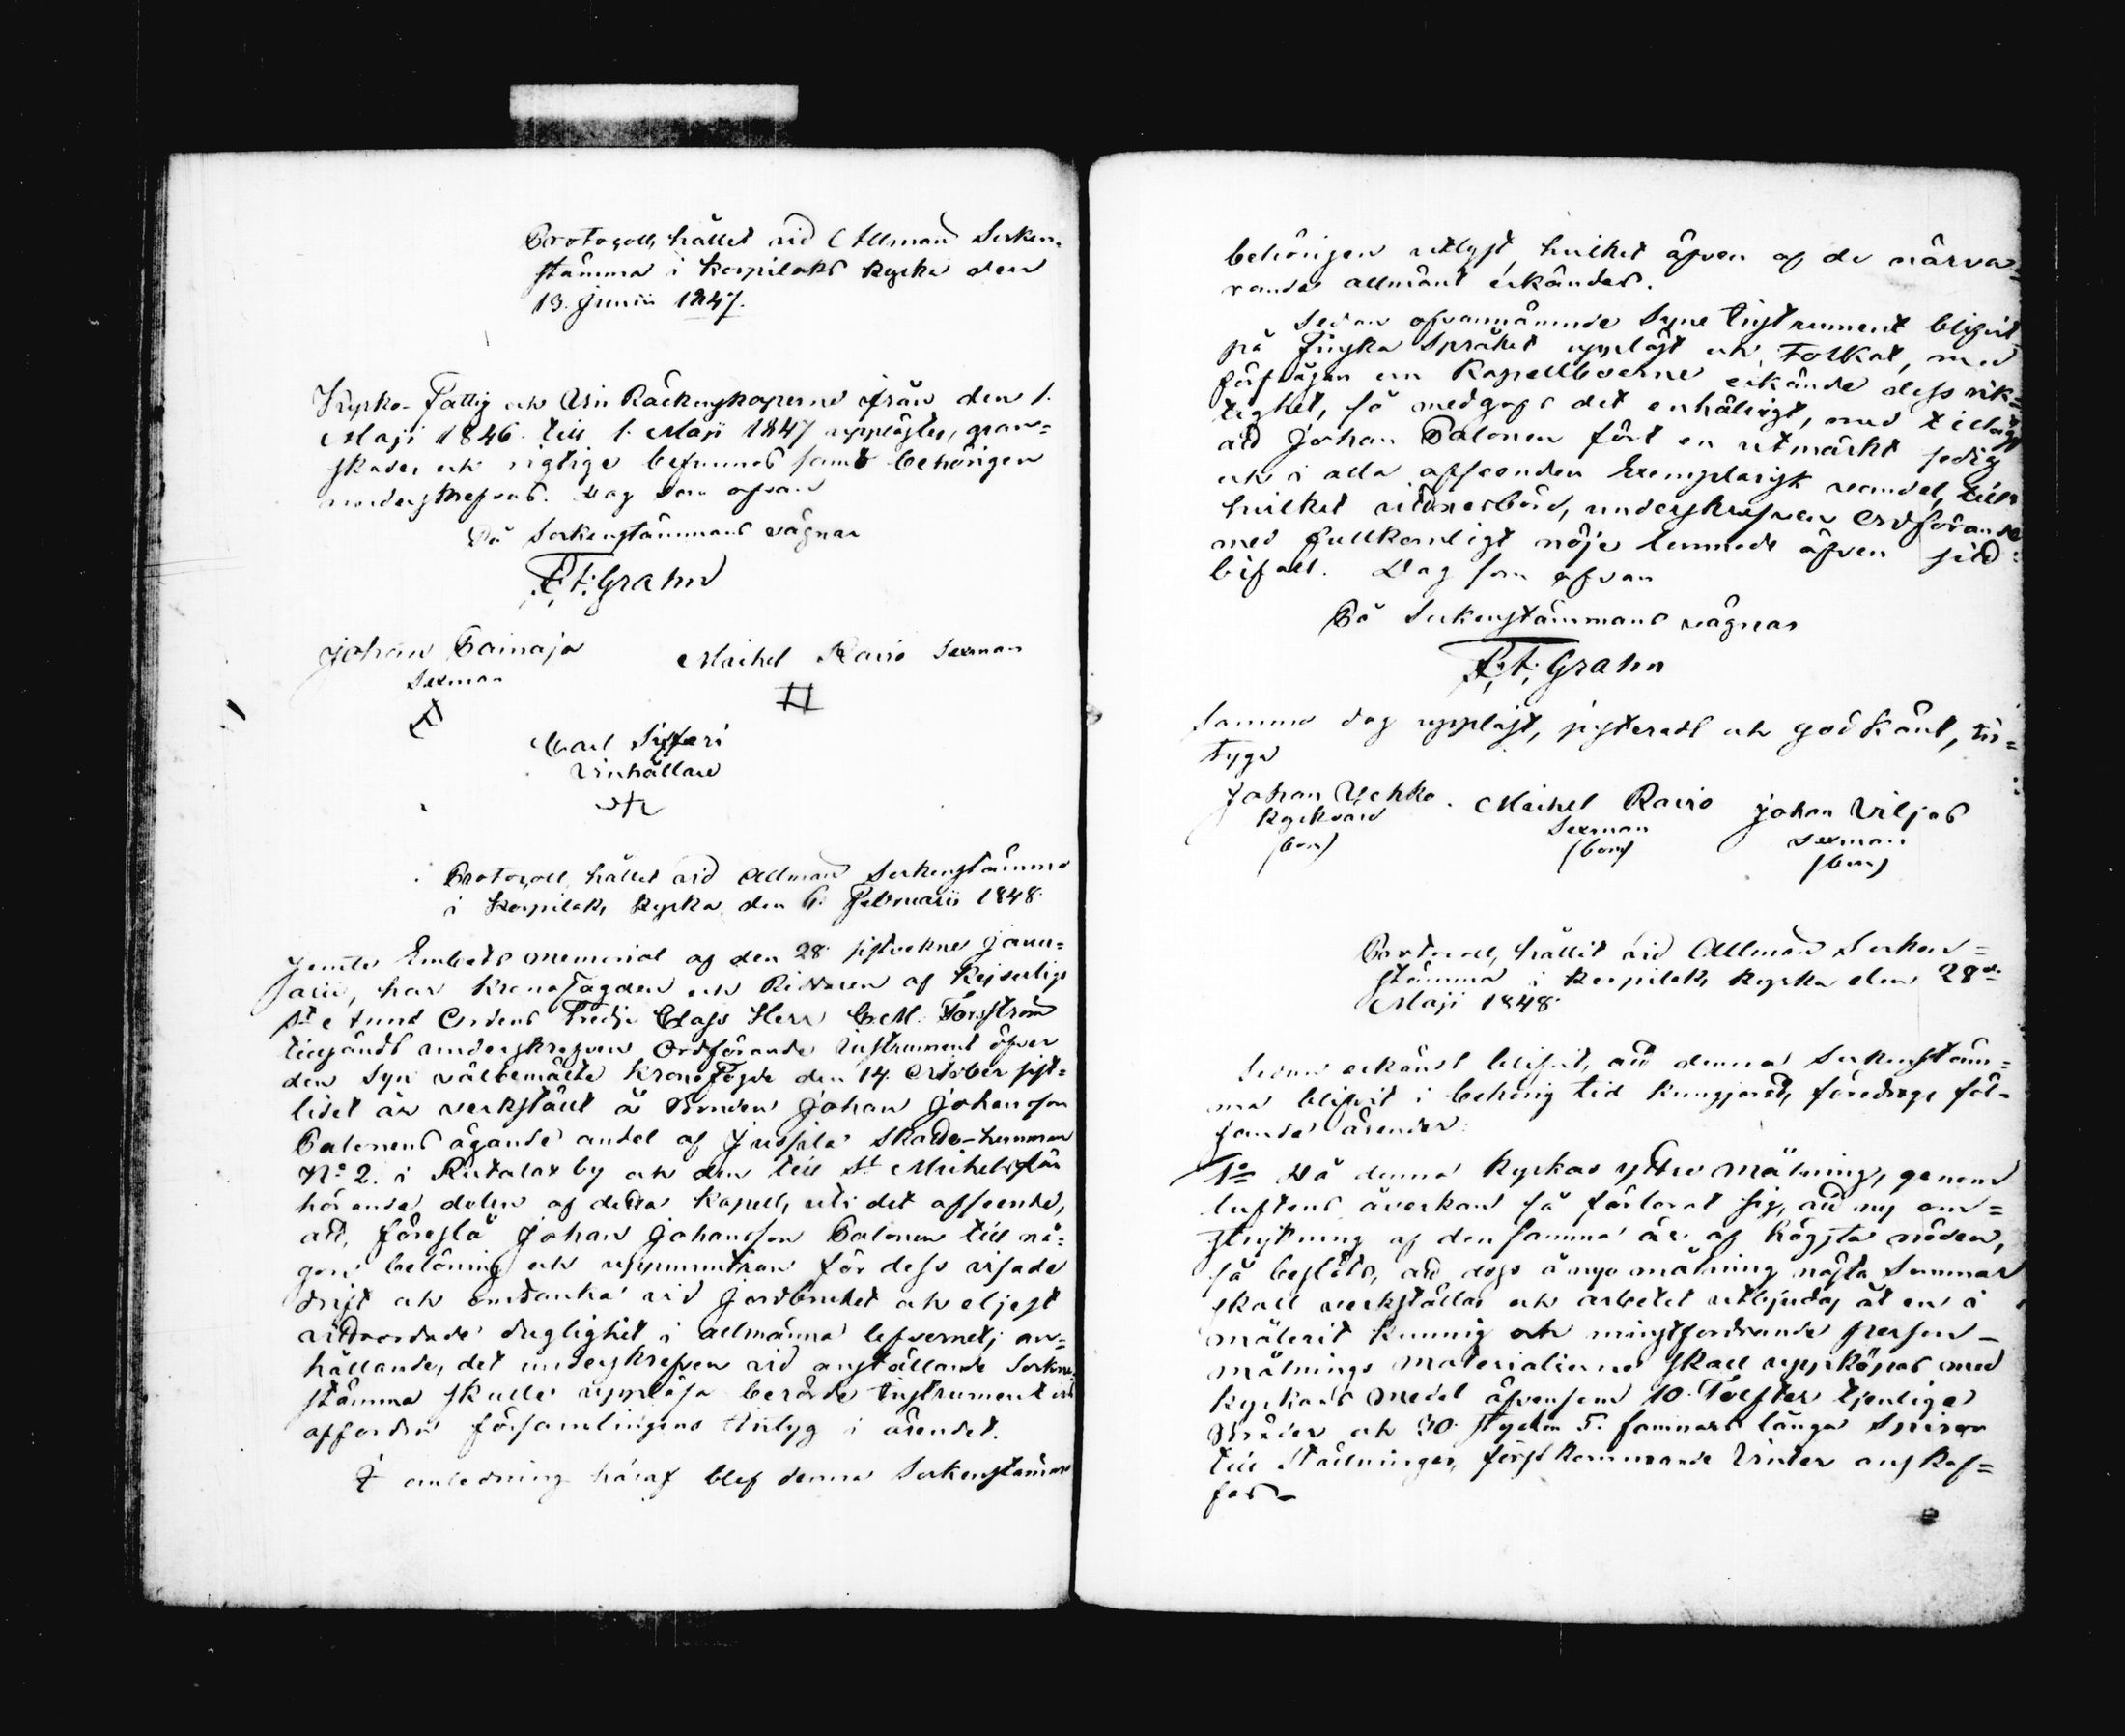 Protocoll, hållet vid Allmän Socken-
stämma i Korpilaks Kyrka den
13. Junii 1847.
Kyrko- Fattig och Vin Räckenskaperne ifrån den 1.
Maji 1846. till 1. Maji 1847 upplästes, gran=
skades och rigtige befunnos samt behörigen
underskrefvos. Dag som ofvan
På Sockenstämmans vägnar
F. F. Grahn
Johan Toinaja
Sexman
Michel Rairo Sexman
Carl Siffari
Vinhållare
Protocoll, hållet vid Allmän Sockenstämma
i Korpilaks Kyrka den 6. Februarii 1848.
Jemte Embets Memorial af den 28 sistvekne Janu=
arii, har KronoFogden och Riddaren af Kejserlige
St. Annæ Ordens Tredje Class Herr C. M. Forsström
tillsändt underskrefven Ordförande Instrument öfver
den Syn välbemälte KronoFogde den 14. October sist=
lidet år verkstält å Bonden Johan Johansson
Palonens ägande andel af Jussila Skatte-hemman
No 2. i Rutalax by och den till St Michels län
hörande delen af detta Kapell, uti det afseende,
att, föreslå Johan Johansson Palonen till nå=
gon belöning och uppmuntran för dess visade
drift och omtanka vid Jordbruket och eljest
vitsordade duglighet i allmänna lefvernet; an=
hållande, det underskrefven vid anställande Socken-
stämma skulle uppläsa berörde Instrument och
affordra församlingens Intyg i ärendet.
I anledning häraf blef denna Sockenstämma
behörigen utlyst, hvilket äfven af de närva=
rande allmänt erkändes.
Sedan ofvannämnde Syne Instrument blifvit
på Finska Språket uppläst och Tolkat, med
förfrågan om Kapellboerne erkände dess rik=
tighet, så medgafs det enhäligt, med tillägg
att Johan Palonen fört en utmärkt sedig
och i alla afseenden Exemplarisk vandel, till
hvilket vittnesbörd, underskrefven Ordförande
med fullkomligt nöje lemnade äfven sitt
bifall. Dag som ofvan
På Sockenstämmans vägnar
F. F. Grahn
Samma dag uppläst, justeradt och godkänt, be=
tyga
Johan Vehko
Kyrkvärd
(bom)
Michel Rairo
Sexman
(bom)
Johan Viljas
Sexman
(bom)
Protocoll, hållit vid Allmän Socken=
stämma i Korpilaks Kyrka den 28de
Maji 1848.
Sedan erkänst blifvit, att denna Sockenstäm=
ma blifvit i behörig tid kungjord, föredrogs föl=
jande ärender:
1o Då denna Kyrkas yttre målning, genom
luftens åverkan så förlorat sig, att ny om=
strykning af densamma är af högsta nöden,
så beslöts, att dess å nyo målning nästa Sommar
skall verkställas och arbetet utbjudas åt en i
måleriet kunnig och minstfordrande person -
målnings Materialierne skall uppköpas med
Kyrkans Medel äfvensom 10. Tolfter tjenliga
Bräder och 30. stycken 5. famnars långa Spiror
till Ställningar, förstkommande Vinter anskaf=
fas -